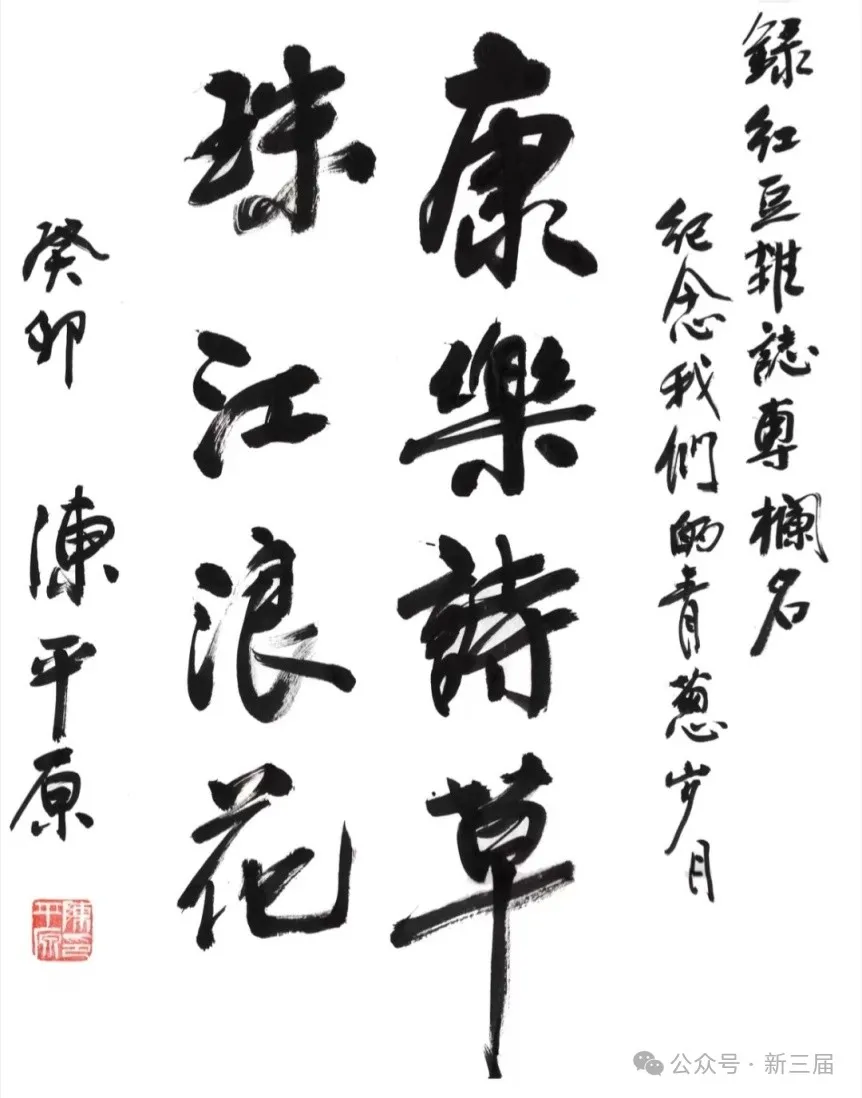 録紅豆雜誌專欄名
紀念我們的青蔥岁月
康樂詩草
珠江浪花
癸卯 陳平原
陳平原印
公众号·新三届